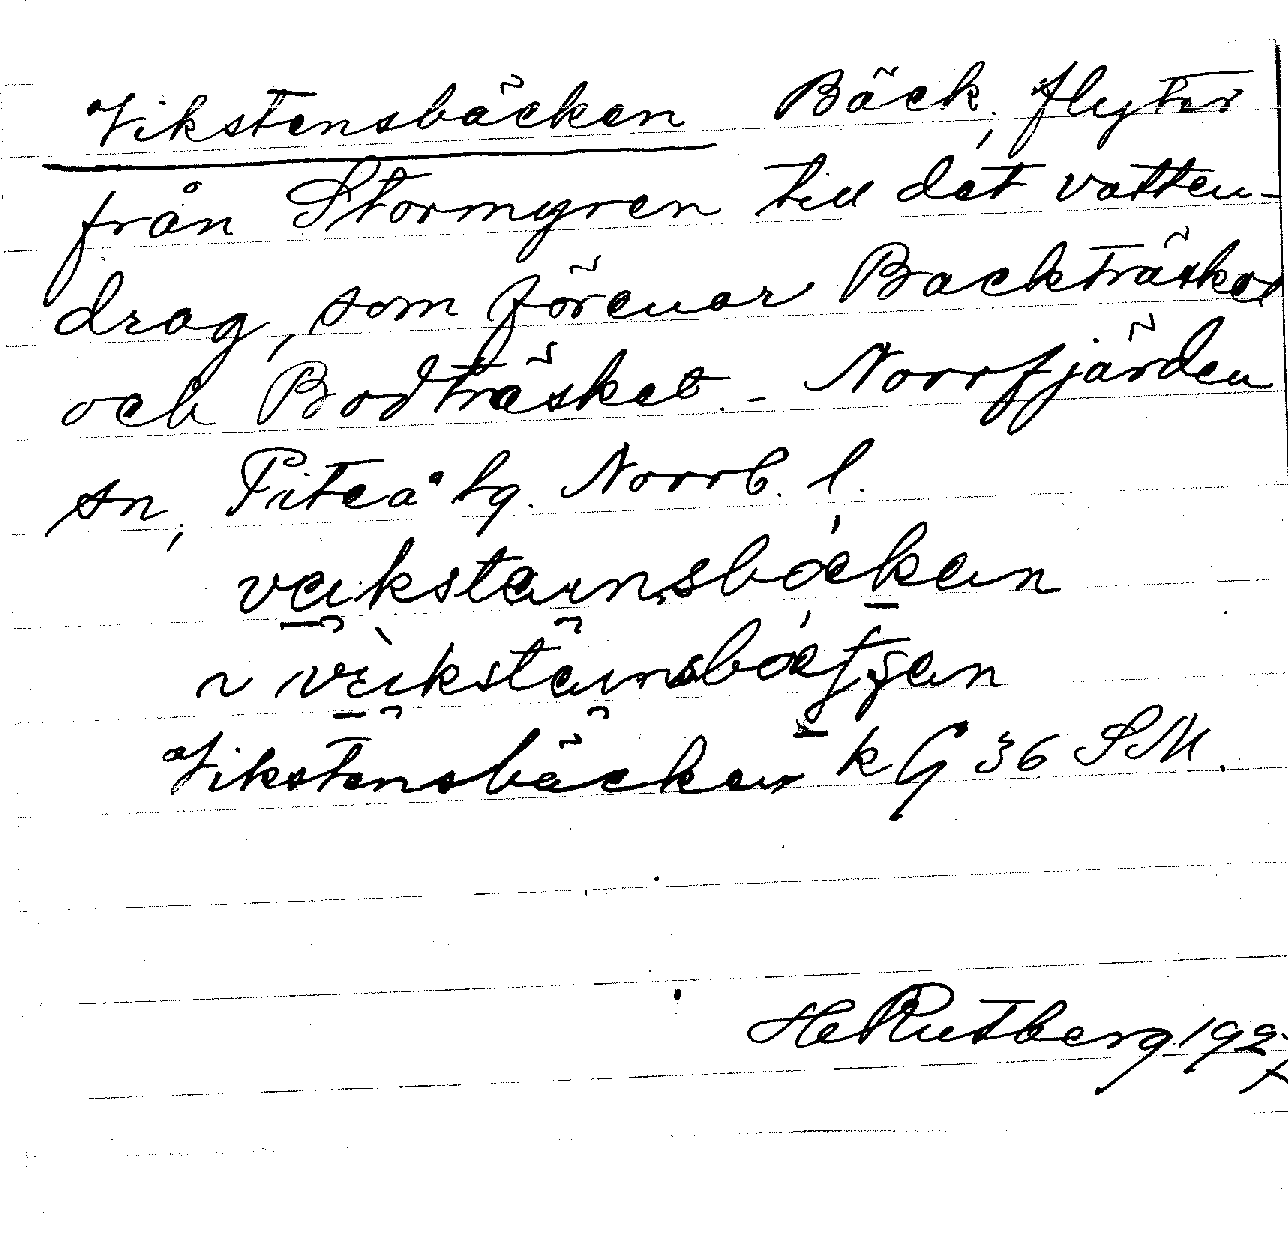 Vikstensbäcken Bäck, flyter
från Stormyren till det vatten-
drag, som förenar Backträsket
och Bodträsket. - Norrfjärden
sn, Piteå tg. Norrb. l.
Vikstensbäcken kG 36 SM.
HRutberg 1927